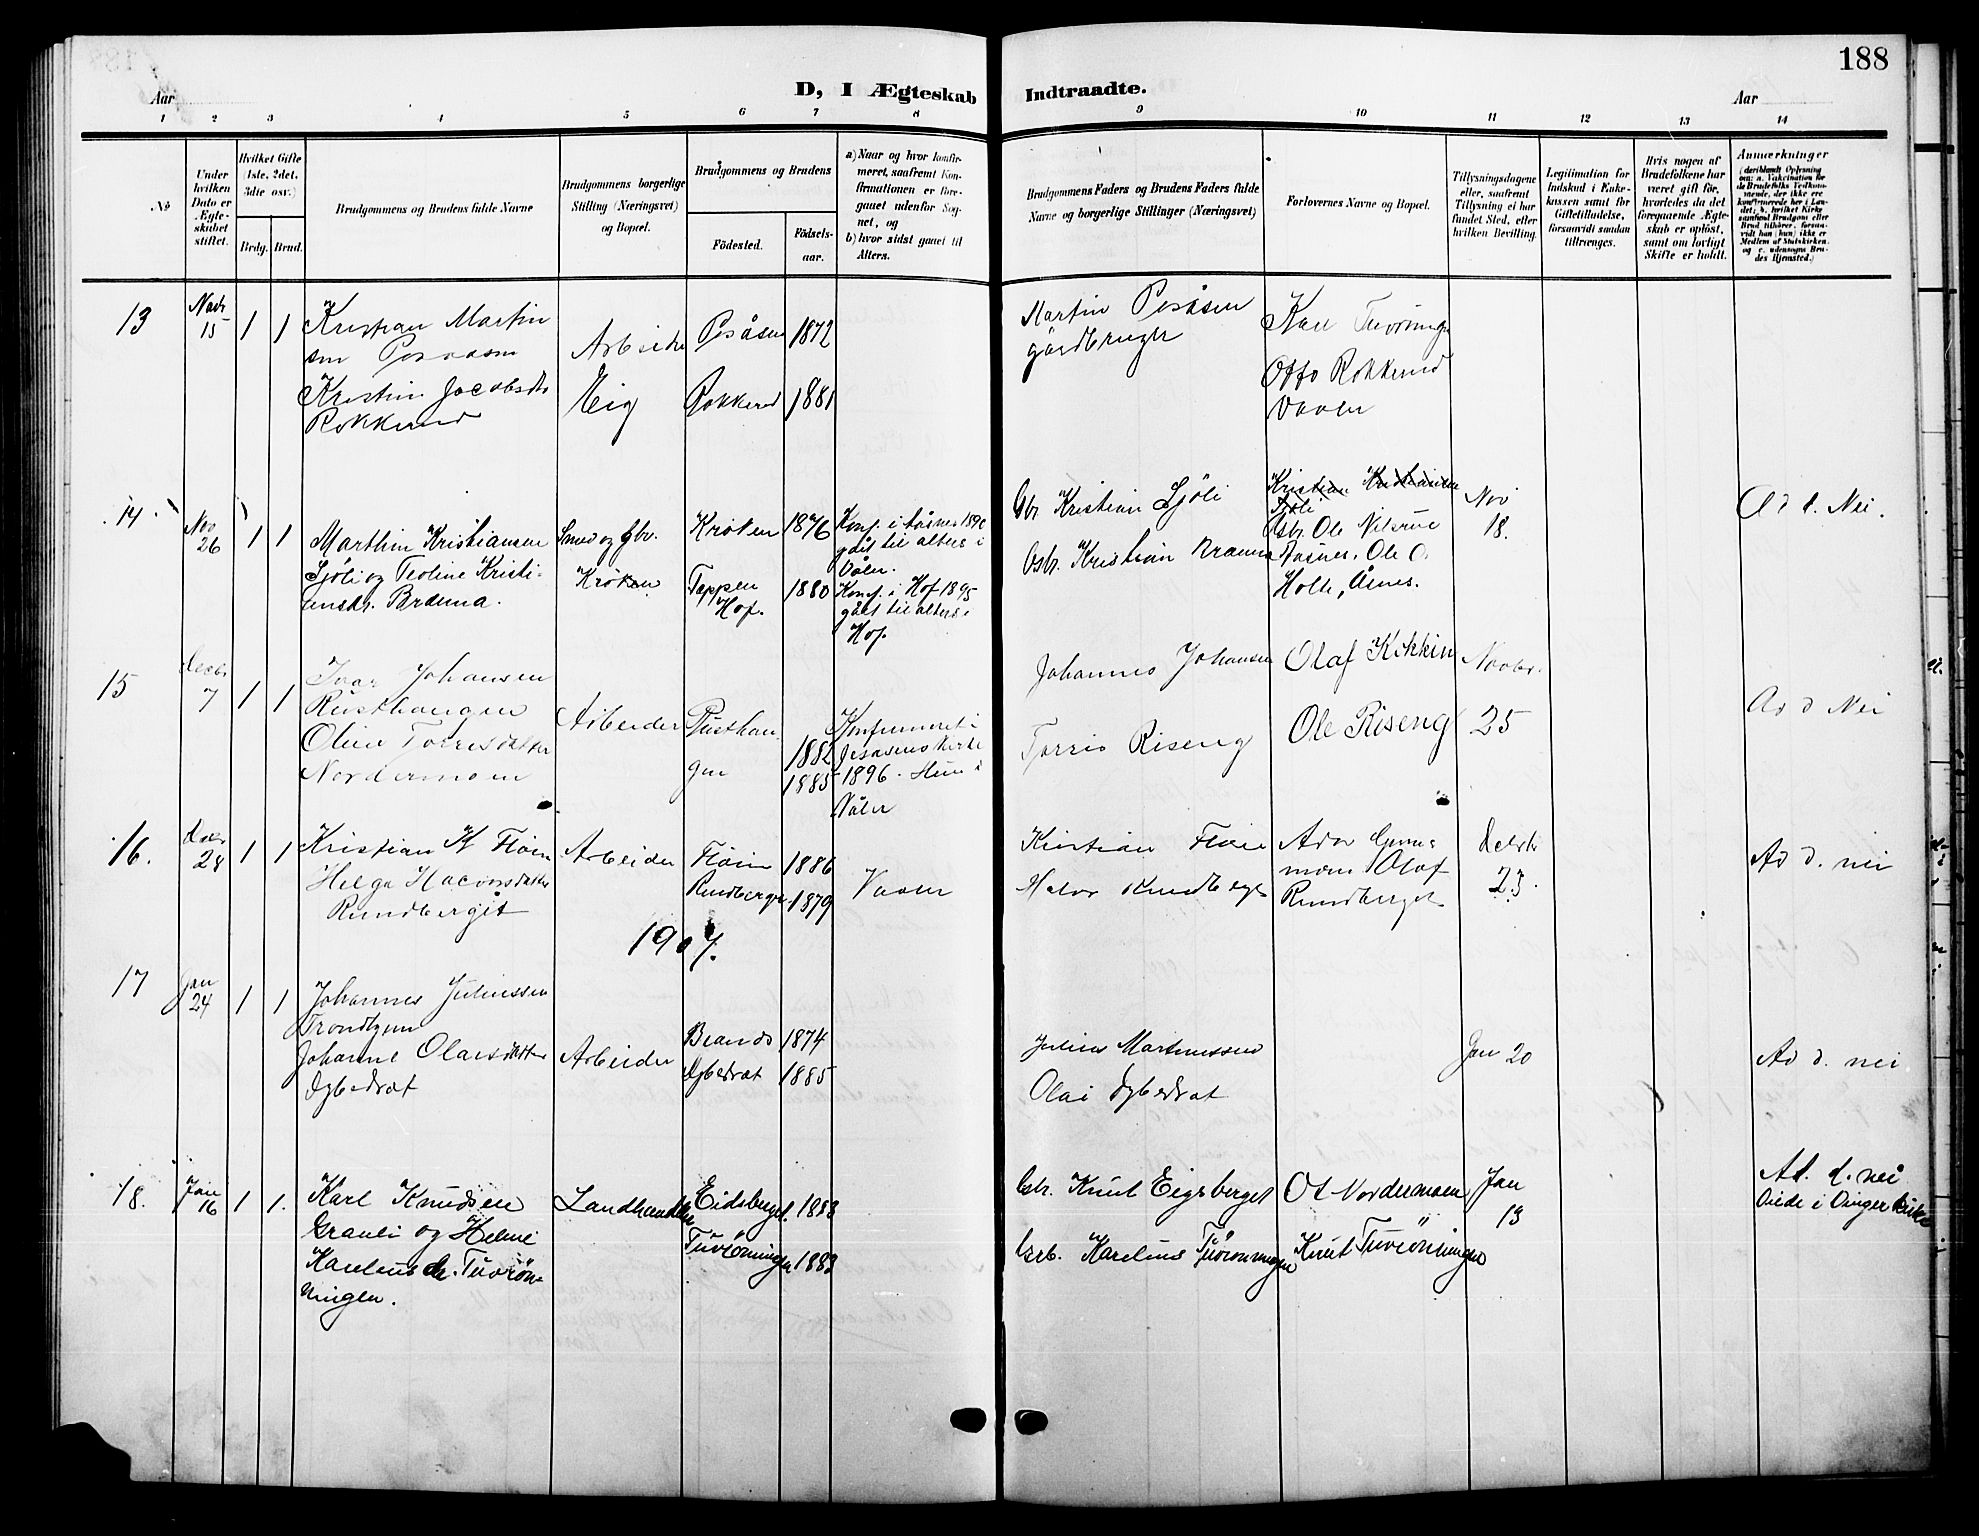 188
Aar
D, I Ægteskab
Indtraadte.
Aar
1 2 3 4 5 6 7 8 9 10 11 12 13 14
No
Under hvilken Dato er Ægteskabet stiftet.
Hvilket Gifte (1ste, 2det, 3die osv.)
Brdg. Brud.
Brudgommens og Brudens fulde Navne
Brudgommens borgerlige Stilling (Næringsvei) og Bopæl.
Brudgommens og Brudens
Fødested.
Fødsels-aar.
a) Naar og hvor konfirmeret, saafremt Konfirmationen er foregaaet udenfor Sognet, og
b) hvor sidst gaaet til Alters.
Brudgommens Faders og Brudens Faders fulde Navne og borgerlige Stillinger (Næringsvei)
Forlovernes Navne og Bopæl.
Tillysningsdagene eller, saafremt Tillysning ei har fundet Sted, efter hvilken Bevilling.
Legitimation for Indskud i Enkekassen samt for Giftetilladelse, forsaavidt saadan tiltrænges.
Hvis nogen af Brudefolkene har været gift før, hvorledes da det foregaaende Ægteskab er opløst, samt om lovligt Skifte er holdt.
Anmærkninger
13 Novbr 15 1 1
Kristian Martin
sen Posaasen
Kristin Jacobsdtr
Rokkerud
Arbeider
Eig
Posåsen 1872
Rokkerud 1881
Martin Posåsen
gårdbruger
Karl Tuvrøninge
Otto Rokkerud
Vaaler
14 Nov 26 1 1
Marthin Kristiansen
Sjøli og Teoline Kristi-
ansdr. Brdenna.
Smed og Gbr.
Krøken
Krøken 1876
Tappen Hof. 1880
Konf. i Åsnes 1890
gåt til alters i
Våler.
Konf. i Hof 1895
gået til alters i
Hof.
Gbr Kristian Sjøli
Gbr. Kristian Brænna
Kristian Kristiansen
Sjøli
Gbr. Ole Nilsrue
Aasnes. Ole O.
Holte, Åsnes.
Nov 18.
Ad d. Nei.
15 Decbr 7 1 1
Ivar Johansen
Rusthaugen
Oline Torrisdatter
Nordermoen
Arbeider
Rusthau
gen
1882
1885
Konfirmeret i
Gravens Kirke
1896. Hun i
Våler
Johannes Johansen
Torris Riseng
Olaf Kokkin
Ole Riseng
Novbr. 25
Ad d Nei
16. Decbr 28 1 1
Kristian K Fløin
Helga Haconsdatter
Rundberget
Arbeider
Fløin 1886
Rundberget 1879
Vaaler
Kristian Fløin
Halvor Rundberget
Olaf
Rundberget
Decbr 23.
Ad d. nei
1907.
17 Jan 24 1 1
Johannes Juliussen
Trondbyen
Johanne Olaisdatter
Dybedrat
Arbeider
Brands 1874
Dybedrat 1885
Julius Martinussen
Olai Dybedrat
Jan 20
Ad d. nei
18. Jan 16 1 1.
Karl Knudsen
Granli og Helmi
Kareliusdr. Tuvrøn-
ningen.
Landhandler
Eidsberget. 1883
Tuvrønningen 1883
Gbr. Knut Eigsberget
Grb. Karelius Tuvrønningen
Ot Nordermoen
Knut Tuvrønningen
Jan 13
Ad. d. nei
Viede i Vinger Kirke